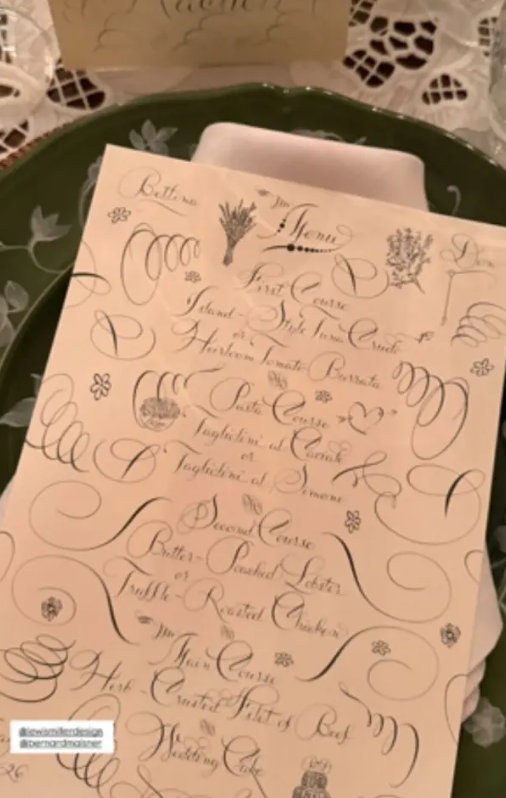 Bettina
Menu
Don
First Course
Island-Style Tuna Crudo
or
Heirloom Tomato Burrata
Pasta Course
Tagliolini al Caviale
or
Tagliolini al Limone
Second Course
Butter-Poached Lobster
or
Truffle-Roasted Chicken
Main Course
Herb Crusted Filet of Beef
Wedding Cake
@lewismillerdesign
@bernardmaisner